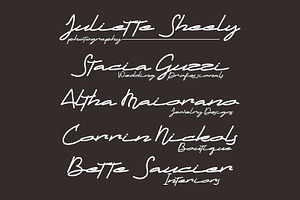 Juliette Sheely
photography
Stacia Guzzi
Wedding Professionals
Altha Maiorano
Jewelry Designs
Corrin Nickols
Boutique
Bette Saucier
Interiors